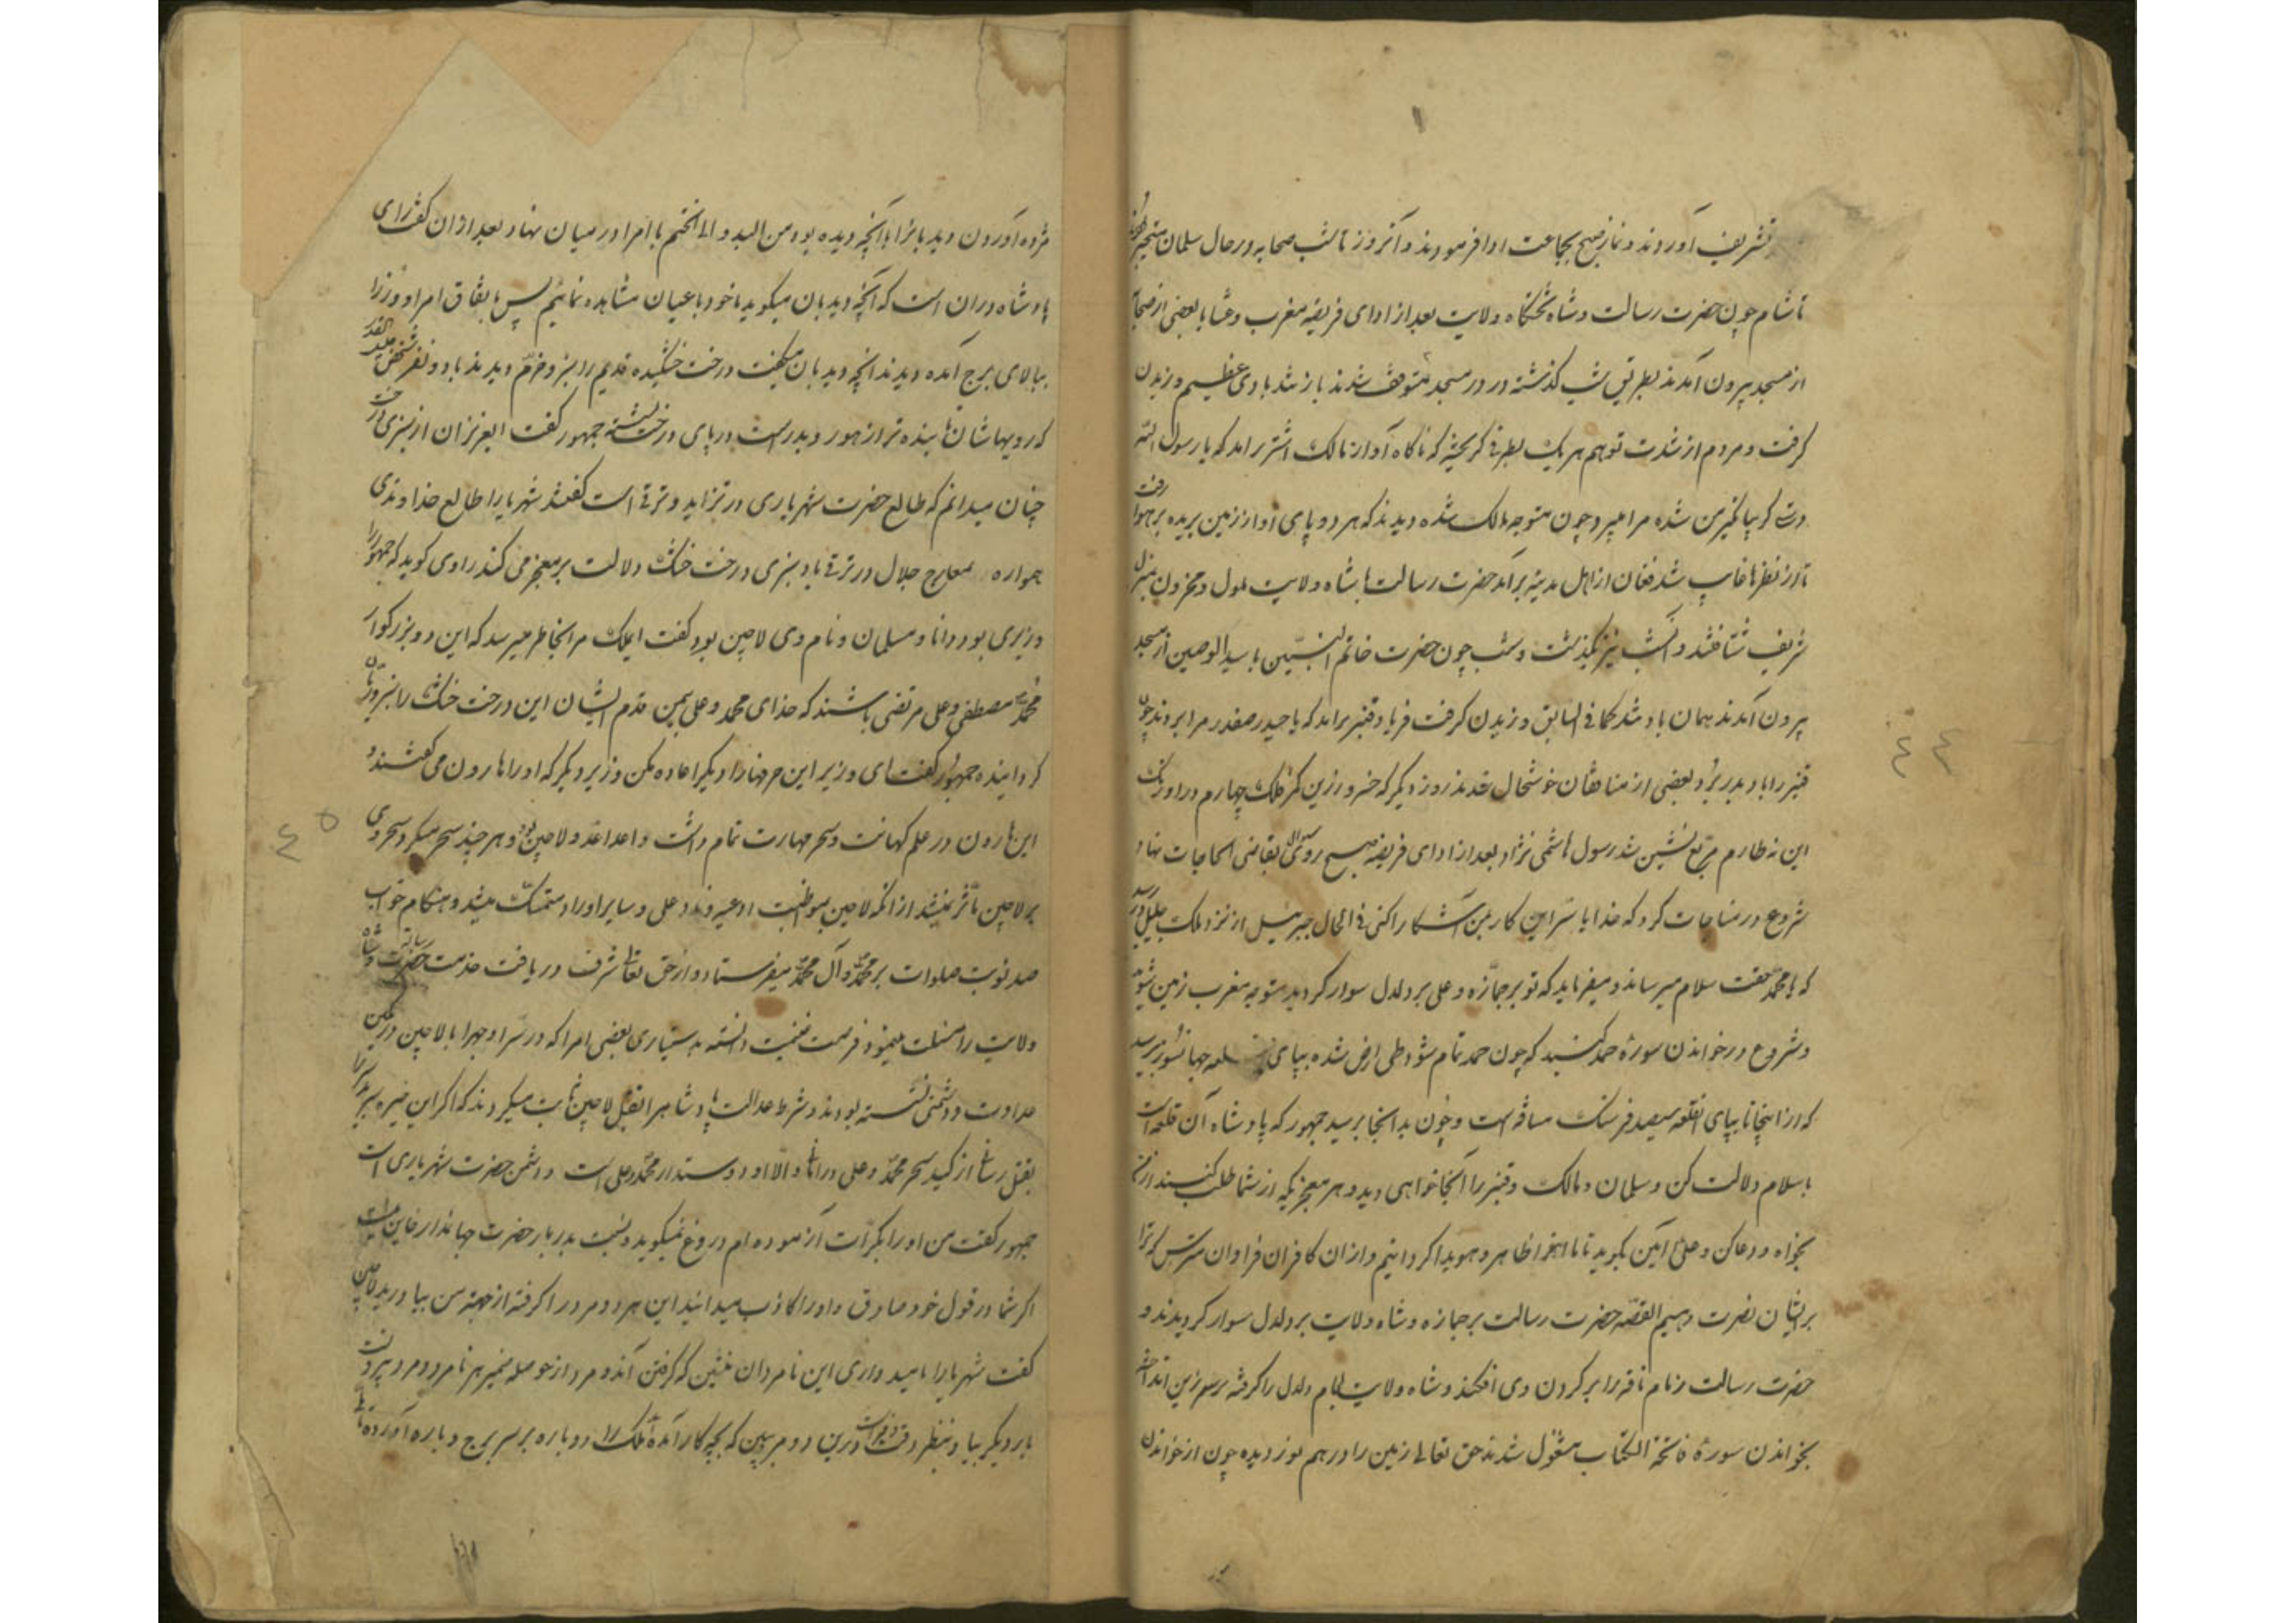 تشریف آوردند و نماز صبح بجماعت ادا فرمودند و آنروز تا شب صحابه در حال سلمان متحیر بودند
تا شام چون حضرت رسالت و شاه تختگاه ولایت بعد از ادای فریضه مغرب و عشا با بعضی از صحابه
از مسجد بیرون آمدند بطریق شب گذشته در در مسجد متوقف شدند باز تند بادی عظیم وزیدن
گرفت و مردم از شدت توهم هر یک بطرفی گریخته که ناگاه آواز مالک اشتر برآمد که یا رسول الله
دستی گریبانگیر من شده مرا میبرد چون متوجه مالک شده دیدند که هر دو پای او از زمین بریده بر هوا رفت
تا از نظرها غایب شد فغان از اهل مدینه برآمد حضرت رسالت با شاه ولایت ملول و محزون بمنزل
شریف شتافتند و آنشب نیز بگذشت و شب چون حضرت خاتم النبیین با سید الوصیین از مسجد
بیرون آمدند همان باد تند کما فی السابق وزیدن گرفت فریاد قنبر برآمد که یا حیدر صفدر مرا بردند چون
قنبر را باد بدر برد و بعضی از منافقان خوشحال شدند روز دیگر که خسرو زرین کمر فلک چهارم در اورنگ
این نه طارم مربع نشین شد رسول هاشمی نژاد بعد از ادای فریضه صبح روی سؤال بقاضی الحاجات نهاد
شروع در مناجات کرد که خدایا سر این کار بمن آشکارا کنی فی الحال جبرئیل از نزد ملک جلیل در رسید
که یا محمد حقت سلام میرساند و میفرماید که تو بر جمازه و علی بر دلدل سوار گردید متوجه مغرب زمین شوید
و شروع در خواندن سورۀ حمد کنید که چون حمد تمام شود طی ارض شده بپای قلعه جهانسوز میرسید
که از اینجا تا بپای آنقلعه سیصد فرسنگ مسافه است و چون بدانجا برسید جمهور که پادشاه آن قلعه است
باسلام دلالت کن و سلمان و مالک و قنبر را آنجا خواهی دید و هر معجزیکه از شما طلب کنند از ما
بخواه و دعا کن و علی آمین بگوید تا ما آنخبر ظاهر و هویدا گردانیم و از آن کافران فراوان مترس که ترا
بر ایشان نصرت دهیم القصه حضرت رسالت بر جمازه و شاه ولایت بر دلدل سوار گردیدند و
حضرت رسالت زمام ناقه را بر گردن وی افکند و شاه ولایت لجام دلدل را گرفته بر سر زین انداخته
بخواندن سورۀ فاتحة الکتاب مشغول شدند حق تعالی زمین را در هم نوردیده چون از خواندن
مژده آوردن دیدبانرا با آنچه دیده بود من البدو الی الختم با امرا در میان نهاد بعد از آن گفت رای
پادشاه در آن است که آنچه دیدبان میگوید با خود باعیان مشاهده نمائیم پس باتفاق امرا و وزرا
ببالای برج آمده دیدند آنچه دیدبان میگفت درخت خشکیده قدیم را سبز و خرم دیدند با دو نفر شخص جلیل القدر
که رویهاشان تابنده تر از هور و بدر است در پای درخت نشسته جمهور گفت ایعزیزان از سبزی درخت
چنان میدانم که طالع حضرت شهریاری در تزاید و ترقی است گفتند شهریارا طالع خداوندی
همواره بمعارج جلال در ترقی باد سبزی درخت خشک دلالت بر معجز می کند راوی گوید که جمهور را
وزیری بود دانا و مسلمان و نام وی لاچین بود گفت ایملک مرا بخاطر میرسد که این دو بزرگوار
محمد مصطفی و علی مرتضی باشند که خدای محمد و علی بیمن قدم ایشان این درخت خشک را سبز و ریان
گردانیده جمهور گفت ای وزیر این حرفها را دیگر اعاده مکن وزیر دیگر که او را هارون می گفتند و
این هارون در علم کهانت و سحر مهارت تمام داشت و اعدا عدو لاچین بود و هر چند سحر میکرد سحر وی
بر لاچین تأثر نمیشد از آنکه لاچین بمواظبت ادعیه و ناد علی و سایر اوراد متمسک میشد و هنگام خواب
صد نوبت صلوات بر محمد و آل محمد میفرستاد و از حق تعالی شرف دریافت خدمت حضرت رسالت و شاه
ولایت را مسئلت مینمود فرصت غنیمت دانسته بدستیاری بعضی امرا که در سر و جهر با لاچین در کمین
عداوت و دشمنی نشسته بودند و شرط عدالت پادشاهرا بقتل لاچین ثابت میکردند که اگر این خیره سر را
بقتل رسانی از کید سحر محمد و علی در امانی والا او دوستدار محمد و علی است و دشمن حضرت شهریاری است
جمهور گفت من او را بکرات آزموده ام دروغ نمیگوید و نسبت بدربار حضرت جهاندار خاین نیست
اگر شما در قول خود صادق و او را کاذب میدانید این هر دو مرد را گرفته از جهته من بیاورید لاچین
گفت شهریارا نامید داری این نامردان منشین که گرفتن آندو مرد از حوصله ضمیر هر نامرد و مرد بیرونست
بار دیگر بیا و بنظر دقت و فراست درین دو مرد ببین که بچه کار آمده ملک را دوباره بر سر برج دوباره آورده تا